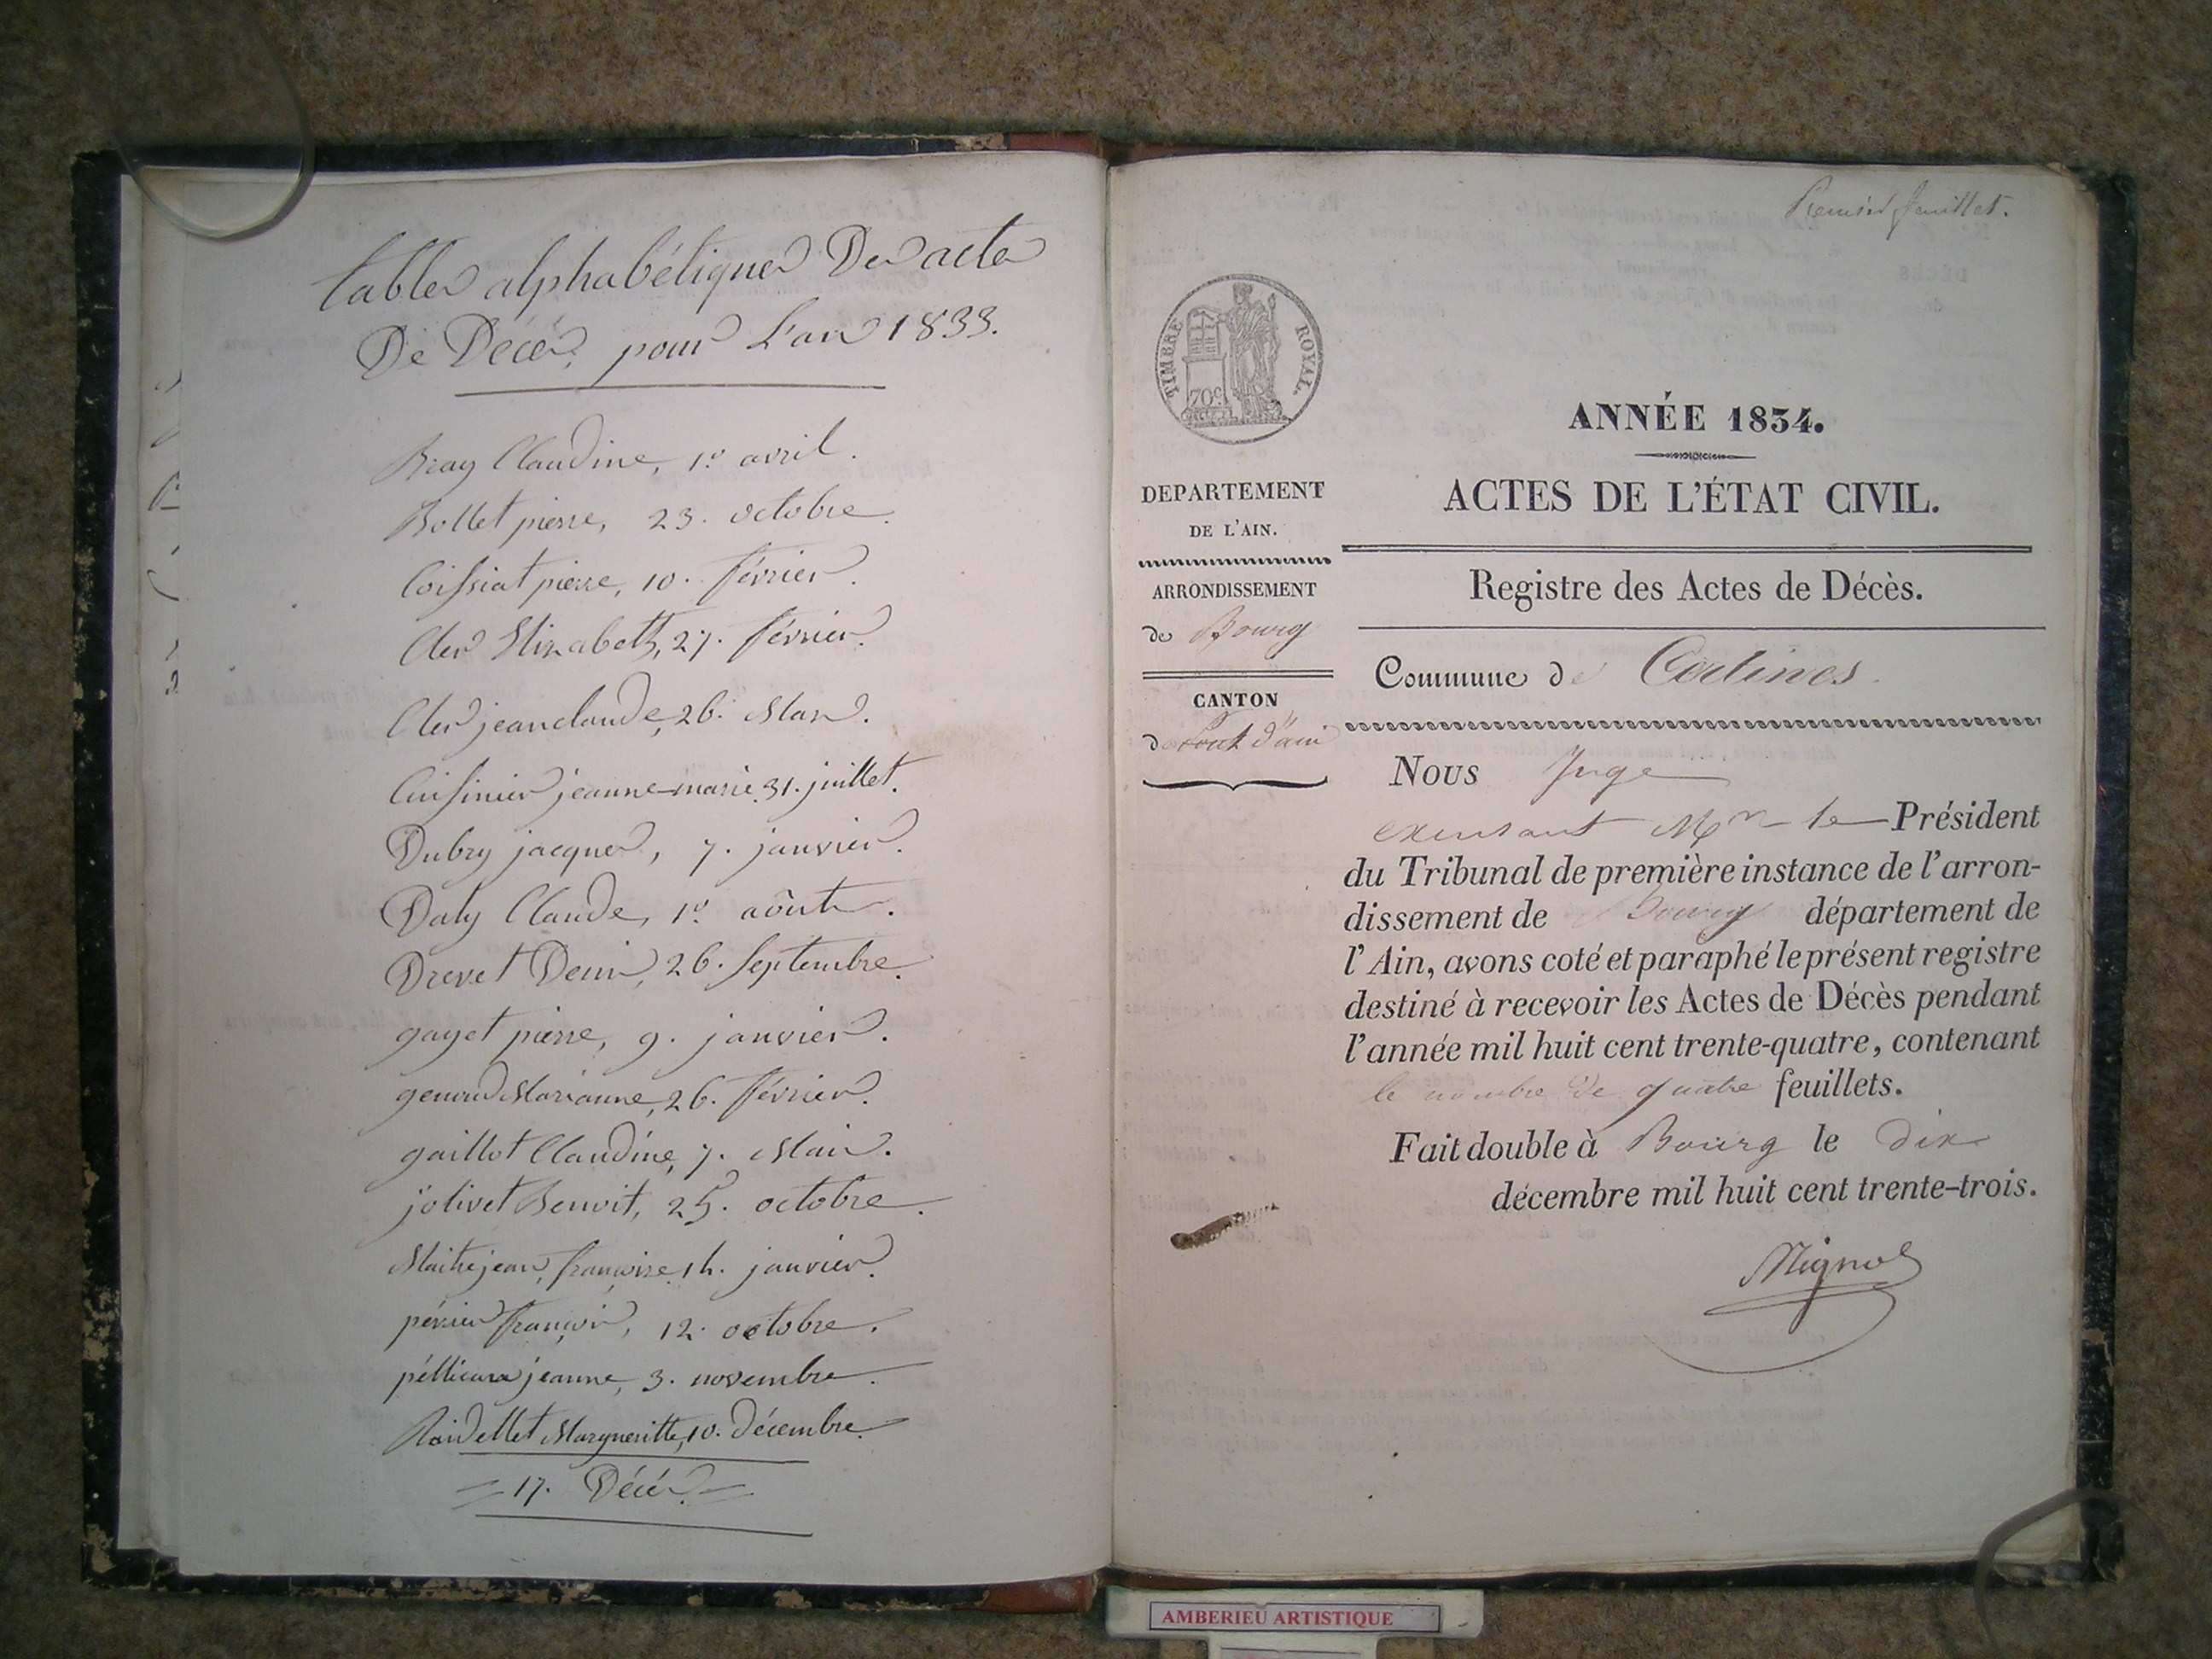 tables alphabétiques Des actes
De Décès, pour L'an 1833.
Bray Claudine, 1er avril.
Bollet pierre, 23. octobre.
Coissiat pierre, 10. février.
Clerc Elizabeth, 27. février.
Clerc jean claude, 26. Mars.
Cuisinier jeanne-marie 31. juillet.
Dubry jacques, 7. janvier.
Daly Claude, 1er août.
Drevet Denis, 26. septembre.
gayet pierre, 9. janvier.
Marianne, 26. février.
gaillot Claudine, 7. Mai.
jolivet Benoit, 25. octobre.
Maitrejean, françoise 14. janvier.
périer françois, 12. octobre.
jeanne, 3. novembre.
Raidellet Margueritte, 10. Décembre.
= 17. Décès =
Premier feuillet.
TIMBRE ROYAL.
70 c.
ANNÉE 1834.
ACTES DE L'ÉTAT CIVIL.
DEPARTEMENT
DE L'AIN.
ARRONDISSEMENT
de Bourg
CANTON
de Pont d'ain
Registre des Actes de Décès.
Commune de Certines.
Nous Juge
Mr le Président
du Tribunal de première instance de l'arron-
dissement de Bourg département de
l'Ain, avons coté et paraphé le présent registre
destiné à recevoir les Actes de Décès pendant
l'année mil huit cent trente-quatre, contenant
le nombre de quatre feuillets.
Fait double à Bourg le dix
décembre mil huit cent trente-trois.
AMBERIEU ARTISTIQUE